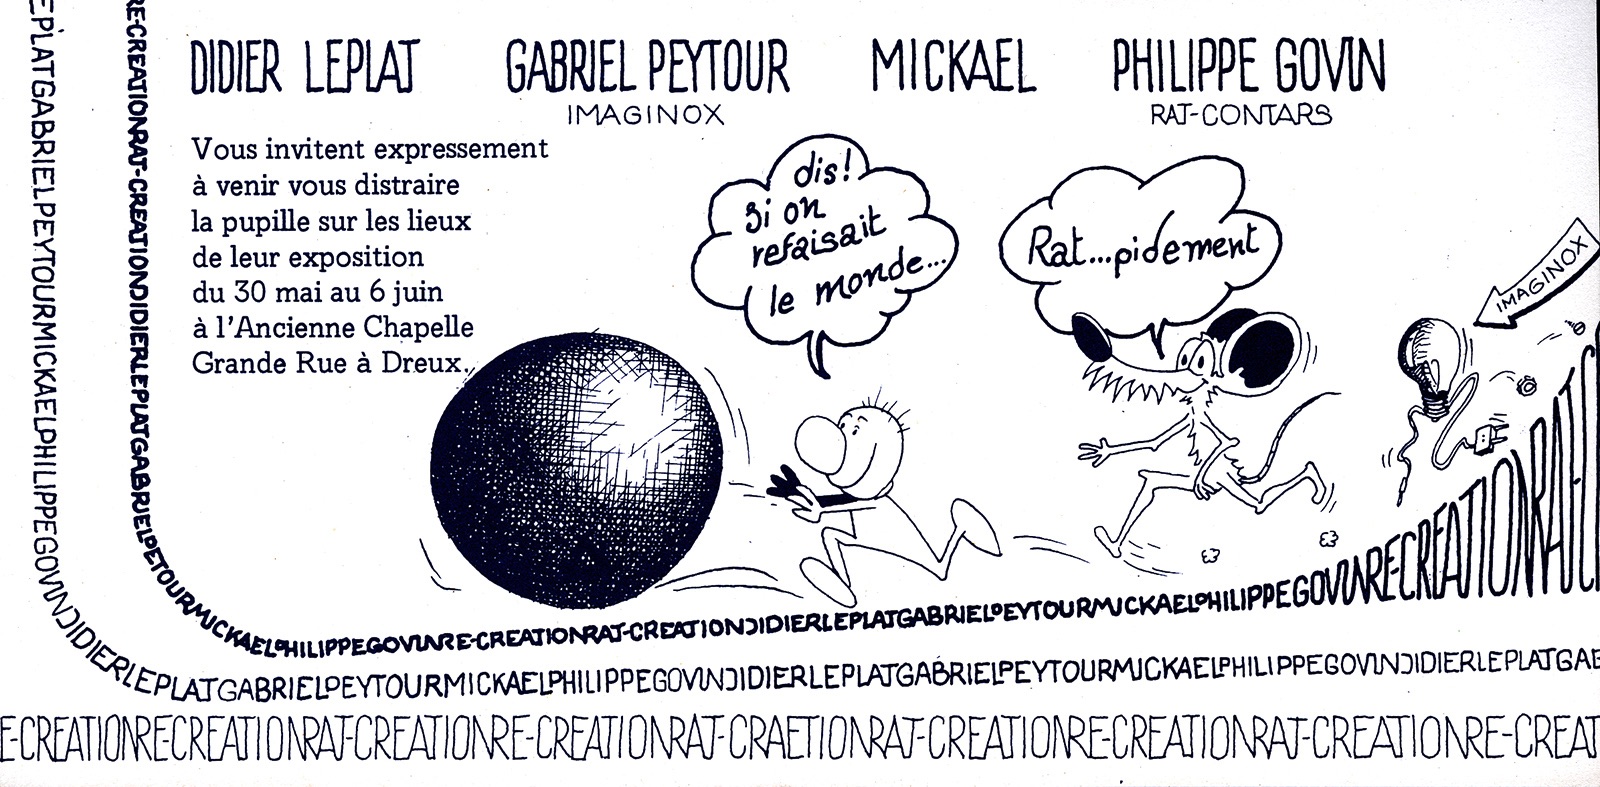 DIDIER LEPLAT GABRIEL PEYTOUR MICKAEL PHILIPPE GOVIN
IMAGINOX RAT-CONTARS
Vous invitent expressement
à venir vous distraire
la pupille sur les lieux
de leur exposition
du 30 mai au 6 juin
à l'Ancienne Chapelle
Grande Rue à Dreux.
dis!
si on
refaisait
le monde...
Rat...pidement
IMAGINOX
RE-CREATIONRAT-CREATIONDIDIERLEPLATGABRIELPEYTOURMICKAELPHILIPPEGOVINRE-CREATIONRAT-CREATIONDIDIERLEPLATGABRIELPEYTOURMICKAELPHILIPPEGOVINRE-CREATIONRAT-C
EPLATGABRIELPEYTOURMICKAELPHILIPPEGOVINDIDIERLEPLATGABRIELPEYTOURMICKAELPHILIPPEGOVINDIDIERLEPLATGABRIELPEYTOURMICKAELPHILIPPEGOVINDIDIERLEPLATGAB
E-CREATIONRECREATIONRAT-CREATIONRE-CREATIONRAT-CRAETIONRAT-CREATIONRE-CREATIONRAT-CREATIONRE-CREAT